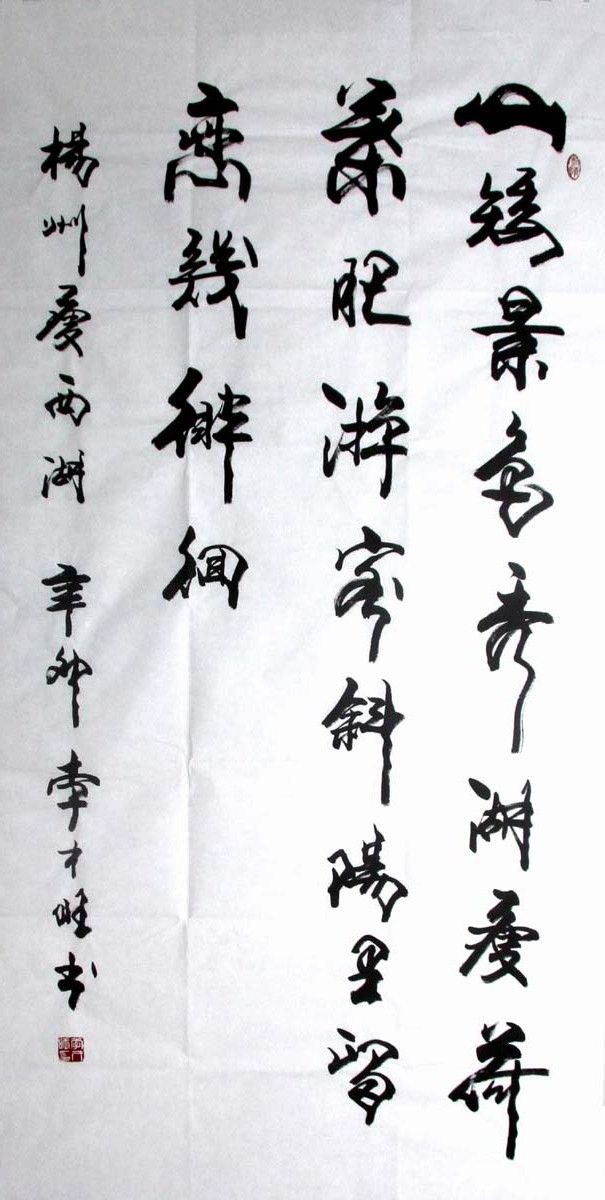 山矮景色秀湖瘦荷
葉肥游客斜陽里留
戀幾徘徊
楊州瘦西湖 辛卯 李才旺书